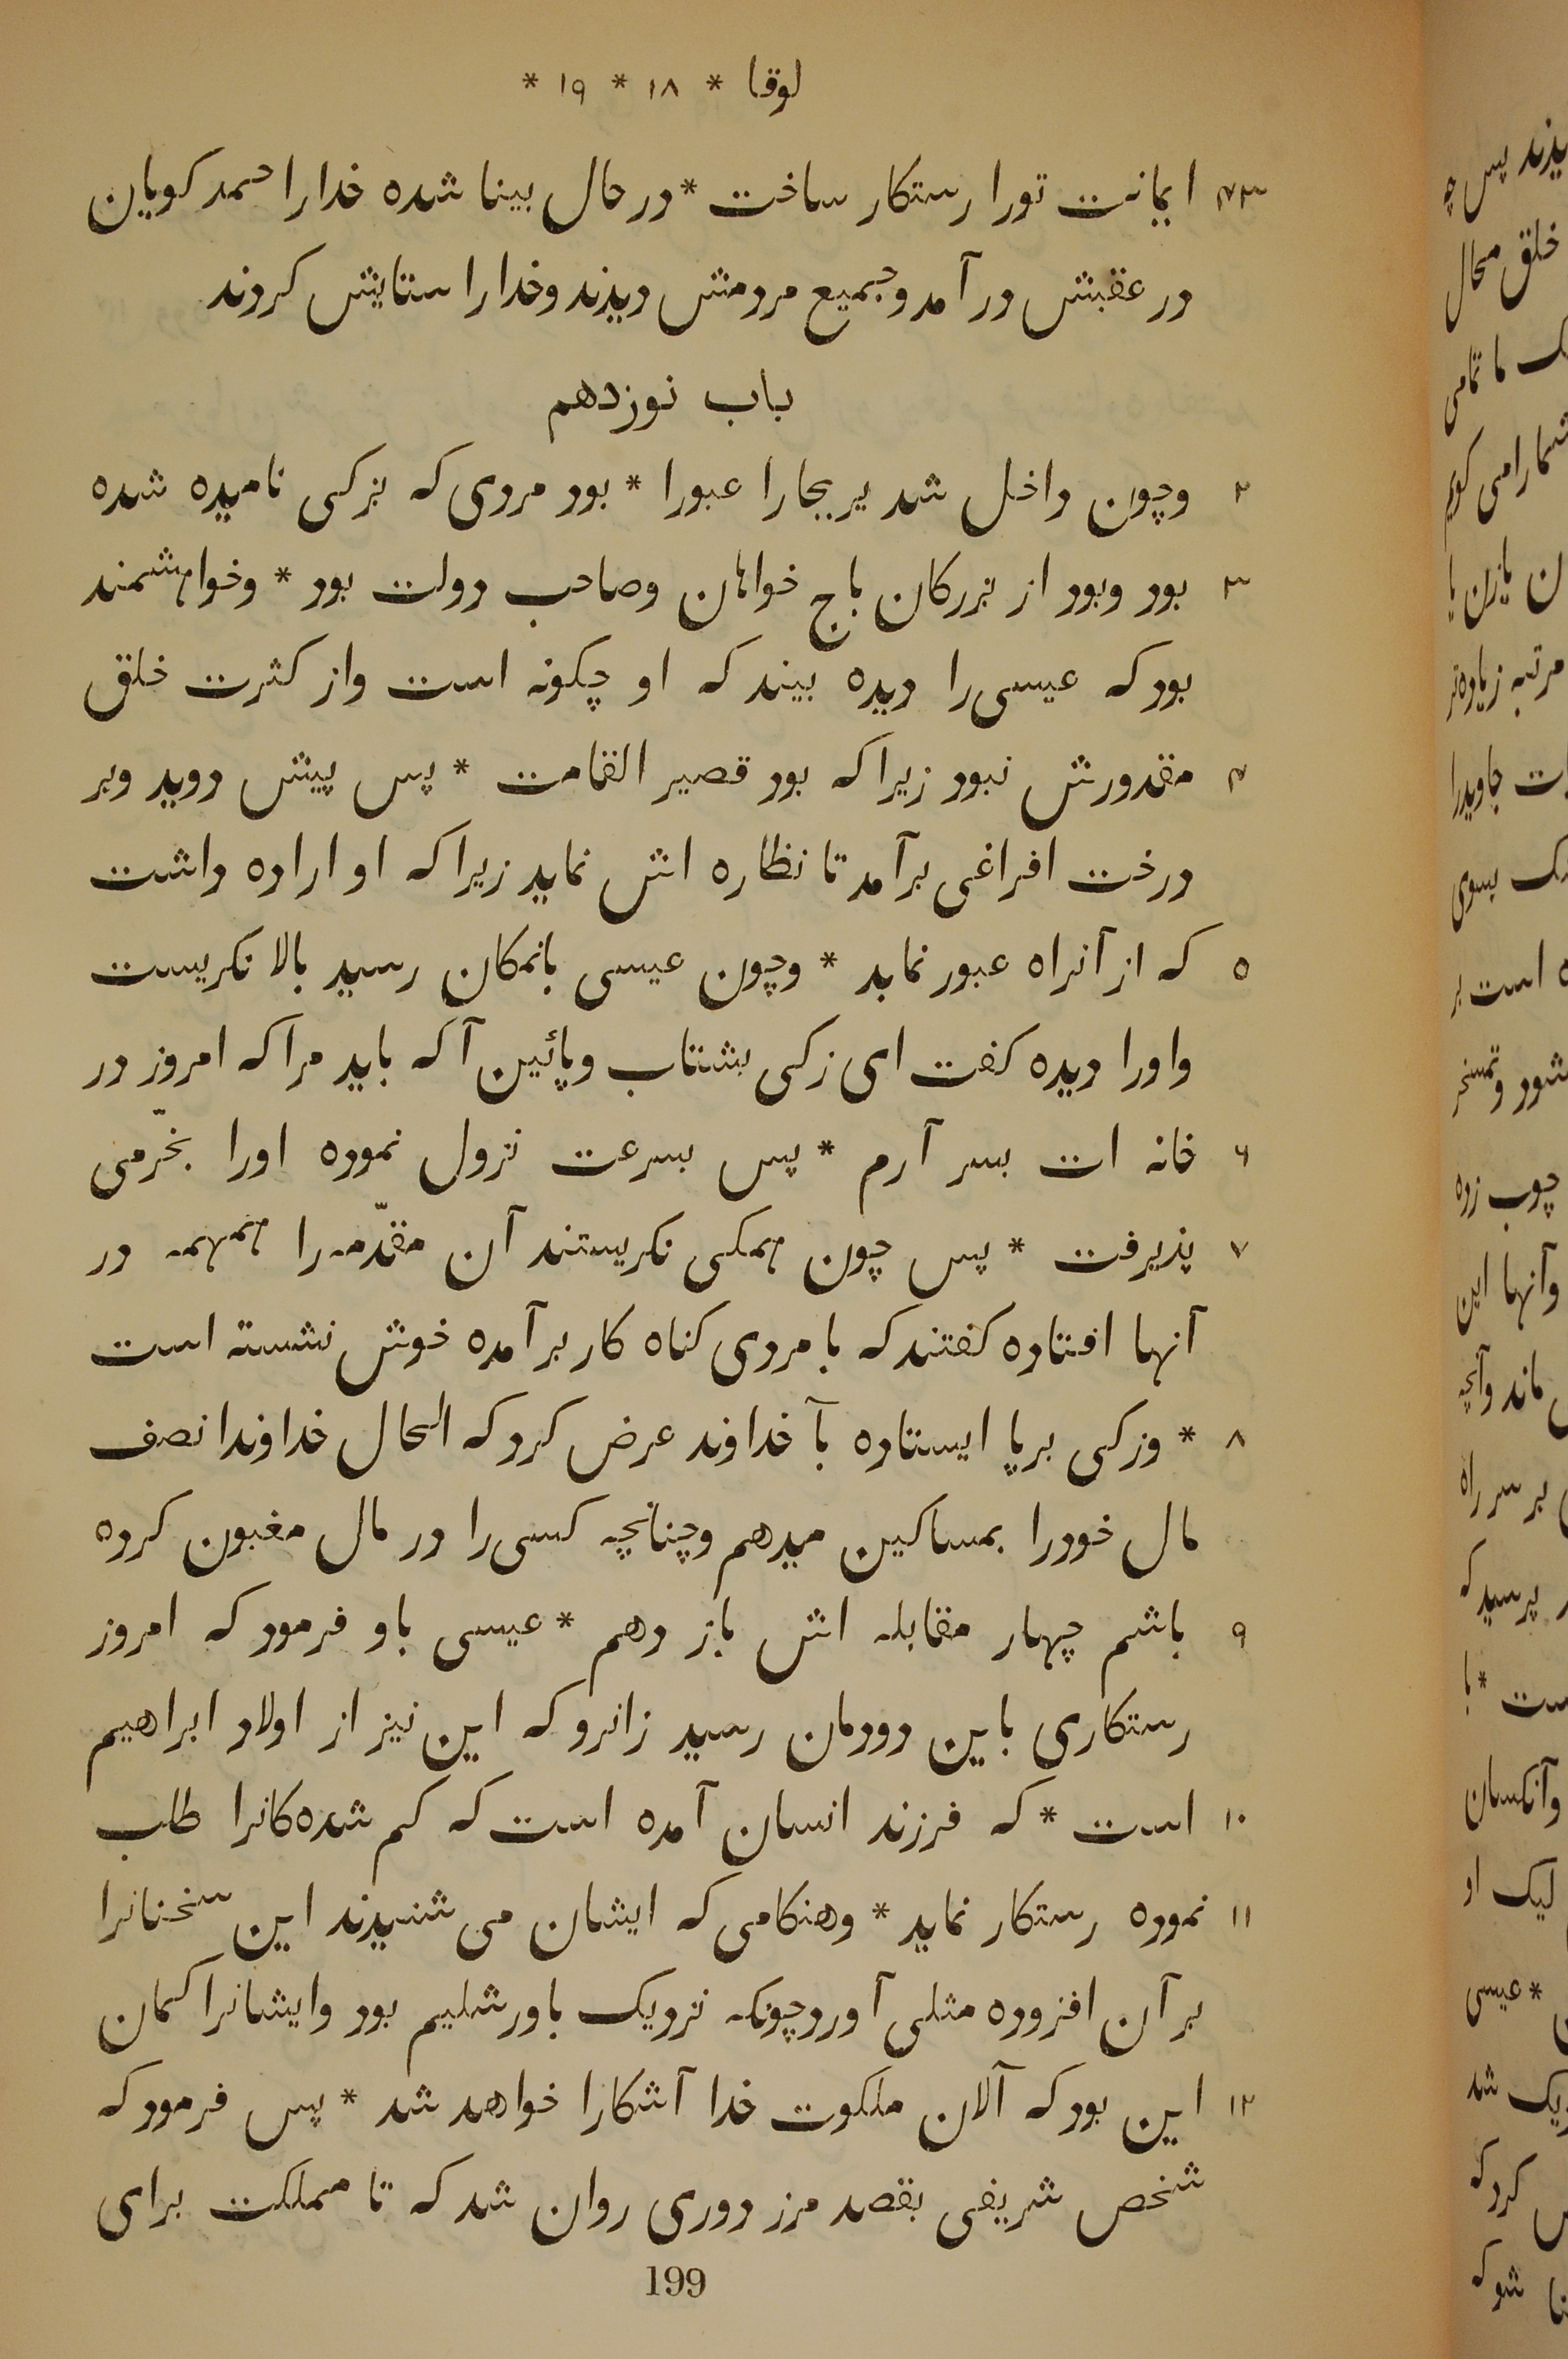 لوقا * ۱۸ * ۱۹ *
۴۳ ایمانت تورا رستکار ساخت * در حال بینا شده خدارا حمد کویان
در عقبش در آمد وجمیع مردمش دیدند وخدارا ستایش کردند
باب نوزدهم
۲ وچون داخل شد یریحارا عبورا * بود مردی که بزکی نامیده شده
۳ بود وبود از بزرکان باج خواهان وصاحب دولت بود * وخواهشمند
بود که عیسی را دیده بیند که او چکونه است واز کثرت خلق
۴ مقدورش نبود زیرا که بود قصیر القامت * پس پیش دوید وبر
درخت افراغی بر آمد تا نظاره اش نماید زیرا که او اراده داشت
۵ که از آنراه عبور نماید * وچون عیسی بانمکان رسید بالا نکریست
واورا دیده کفت ای زکی بشتاب وپائین آ که باید مرا که امروز در
۶ خانه ات بسر آرم * پس بسرعت نزول نموده اورا بخرّمی
۷ پذیرفت * پس چون همکی نکریستند آن مقدّمه را همهمه در
آنها افتاده کفتند که با مردی کناه کار بر آمده خوش نشسته است
۸ * وزکی برپا ایستاده بآ خداوند عرض کرد که الحال خداوندا نصف
مال خودرا بمساکین میدهم وچنانچه کسی را در مال مغبون کرده
۹ باشم چهار مقابله اش باز دهم * عیسی باو فرمود که امروز
رستکاری باین دودمان رسید زانرو که این نیز از اولاد ابراهیم
۱۰ است * که فرزند انسان آمده است که کم شده کانرا طلب
۱۱ نموده رستکار نماید * وهنکامی که ایشان می شنیدند این سخنانرا
بر آن افزوده مثلی آورد چونکه نزدیک باورشلیم بود وایشانرا کمان
۱۲ این بود که آلان ملکوت خدا آشکارا خواهد شد * پس فرمود که
شخص شریفی بقصد مرز دوری روان شد که تا مملکت برای
199